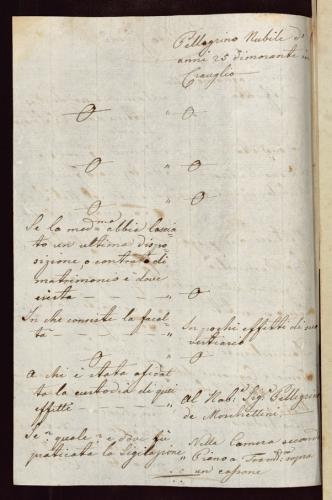 Pellegrino Nubile di
anni 25 dimorante in
Craveglio
O O
O " O
O
O
Se la med.ma abbia lascia=
to un ultima dispo=
sizione, o contratto di
matrimonio e dove
esista " O
In che consiste la facol=
tà " In pochi effetti di
vestiario
O " O
A chi è stata afidat
ta la custodia di quei
effetti " Al Nob.e Sig.r Pellegrino
de Morchettini
Se, quale, e dove fù
praticata la Sigilazione " Nella Camera secondo
Piano a sopra
un cassone